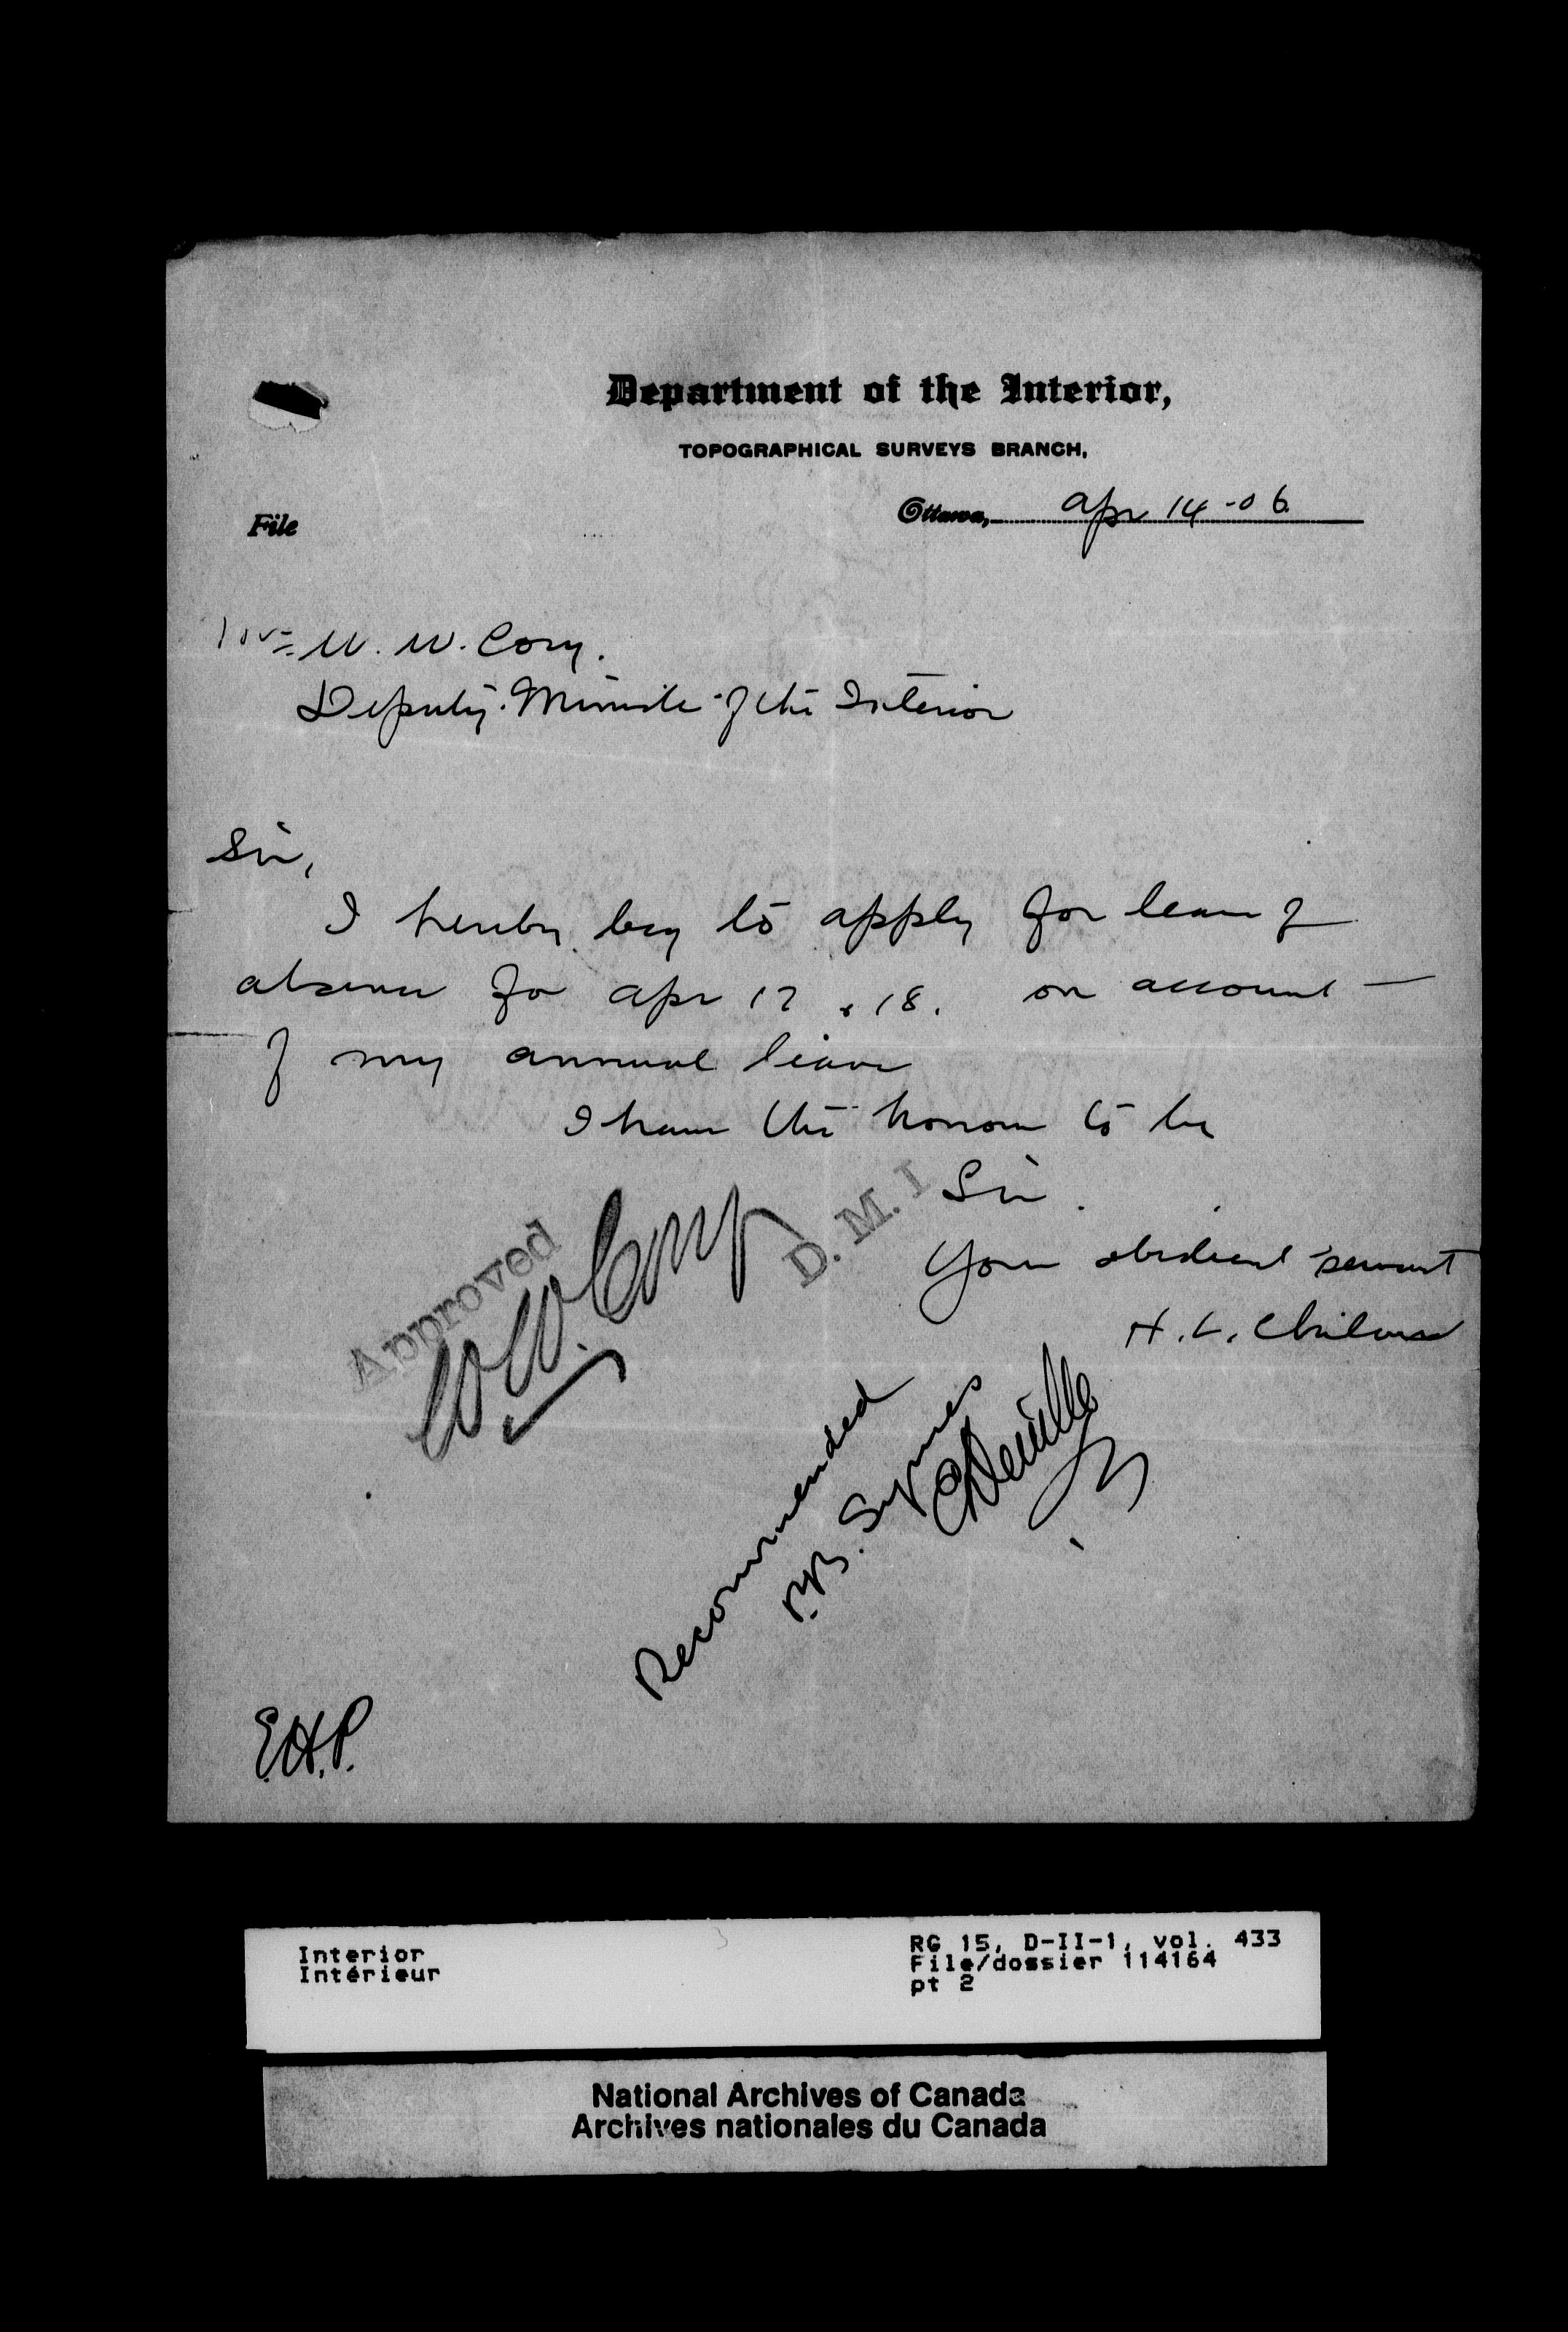 Department of the Interior,
TOPOGRAPHICAL SURVEYS BRANCH,
Ottawa, Apr 14-06.
File
W. W. Cory.
Deputy Minister of the Interior
Sir,
I hereby beg to apply for leave of
absence for Apr 17 & 18. on account
of my annual leave
I have the honour to be
Sir.
Your obedient servant
H. L.
Approved
W.W. Cory
D. M. I
Recommended
P.B. Symes
E Deville
E.H.P.
Interior
Intérieur
RG 15, D-II-1, vol. 433
File/dossier 114164
pt 2
National Archives of Canada
Archives nationales du Canada